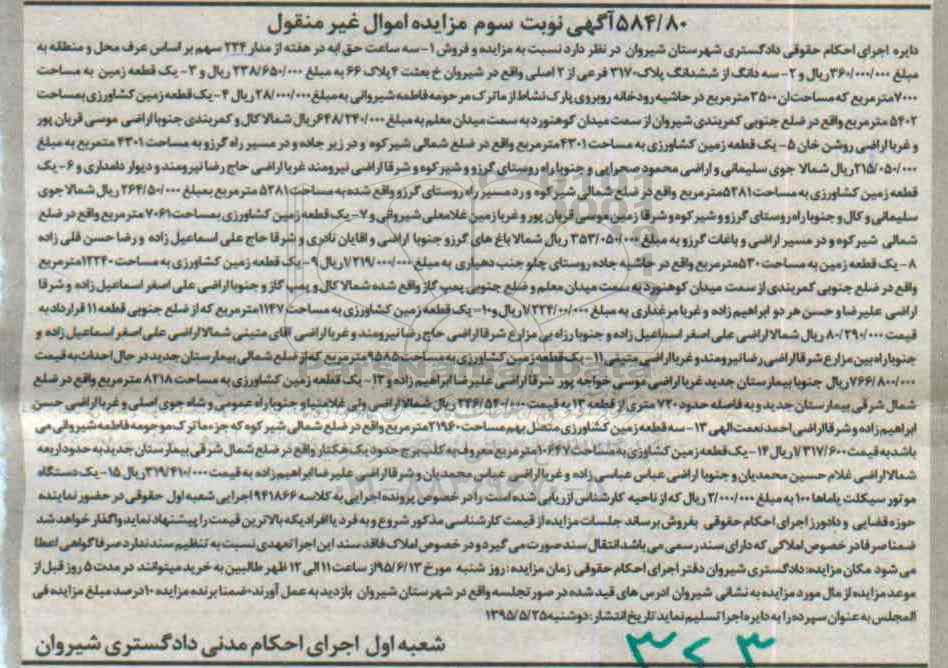 ۵۸۴/۸۰آگهی نوبت سوم مزایده اموال غیر منقول
دایره اجرای احکام حقوقی دادگستری شهرستان شیروان در نظر دارد نسبت به مزایده و فروش ۱-سه ساعت حق ابه در هفته از مدار ۲۳۴ سهم بر اساس عرف محل و منطقه به
مبلغ ۳۶۰/۰۰۰/۰۰۰ریال و ۲- سه دانگ از ششدانگ پلاک۳۱۷۰ فرعی از ۲ اصلی واقع در شیروان خ بعثت ۴ پلاک ۶۶ به مبلغ ۲۳۸/۶۵۰/۰۰۰ریال و ۳- یک قطعه زمین به مساحت
۷۰۰۰مترمربع که مساحت ان ۳۵۰۰ مترمربع در حاشیه رودخانه روبروی پارک نشاط از ماترک مرحومه فاطمه شیروانی به مبلغ۲۸/۰۰۰/۰۰۰ریال ۴- یک قطعه زمین کشاورزی بمساحت
۵۴۰۲ مترمربع واقع در ضلع جنوبی کمربندی شیروان از سمت میدان کوهنورد به سمت میدان معلم به مبلغ ۶۴۸/۲۴۰/۰۰۰ریال شمالا کال و کمربندی جنوبا اراضی موسی قربان پور
و غربا اراضی روشن خان ۵- یک قطعه زمین کشاورزی به مساحت ۴۳۰۱مترمربع واقع در ضلع شمالی شیرکوه و در زیر جاده و در مسیر راه گرزو به مساحت ۴۳۰۱ مترمربع به مبلغ
۲۱۵/۰۵۰/۰۰۰ریال شمالا جوی سلیمانی و اراضی محمود صحرایی و جنوبا راه روستای گرزو و شیرکوه و شرقا اراضی نیرومند غربا اراضی حاج رضا نیرومند و دیوار دامداری و ۶- یک
قطعه زمین کشاورزی به مساحت ۵۲۸۱مترمربع واقع در ضلع شمالی شیرکوه و رد مسیر راه روستای گرزو واقع شده به مساحت ۵۲۸۱ مترمربع بمبلغ ۲۶۴/۵۰/۰۰۰ریال شمالا جوی
سلیمانی و کال و جنوبا راه روستای گرزو و شیرکوه و شرقا زمین موسی قربان پور و غربا زمین غلامعلی شیروانی و ۷- یک قطعه زمین کشاورزی بمساحت ۷۰۶۱ مترمربع واقع در ضلع
شمالی شیرکوه و در مسیر اراضی و باغات گرزو به مبلغ ۳۵۳/۰۵۰/۰۰۰ ریال شمالا باغ های گرزو جنوبا اراضی و اقایان نادری و شرقا حاج علی اسماعیل زاده و رضا حسن قلی زاده
۸- یک قطعه زمین به مساحت ۵۳۰مترمربع واقع در حاشیه جاده روستای چلو جنب دهیاری به مبلغ ۱/۲۱۹/۰۰۰/۰۰۰ریال ۹- یک قطعه زمین کشاورزی به مساحت ۱۲۲۴۰مترمربع
واقع در ضلع جنوبی کمربندی از سمت میدان کوهنورد به سمت میدان معلم و ضلع جنوبی پمپ گاز واقع شده شمالا کال و پمپ گاز و جنوبا اراضی علی اصغر اسماعیل زاده و شرقا
اراضی علیرضا و حسن هر دو ابراهیم زاده و غربا مرغداری به مبلغ ۱/۲۲۴/۰۰/۰۰۰ریال و۱۰- یک قطعه زمین کشاورزی به مساحت ۱۱۴۷مترمربع که از ضلع جنوبی قطعه ۱۱ قرارداد به
قیمت ۸۰/۲۹۰/۰۰۰ریال شمالا اراضی علی اصغر اسماعیل زاده و جنوبا رزاه بی مزارع شرقا اراضی حاج رضا نیرومند و غربا اراضی اقای متینی شمالا اراضی علی اصغر اسماعیل زاده و
جنوبا راه بین مزارع شرقا اراضی رضا نیرومند و غربا اراضی متیقی ۱۱- یک قطعه زمین کشاورزی به مساحت ۹۵۸۵مترمربع که از ضلع شمالی بیمارستان جدید در حال احداث به قیمت
۷۶۶/۸۰۰/۰۰۰ریال جنوبا بیمارستان جدید غربا اراضی موسی خواجه پور شرقا اراضی علیرضا ابراهیم زاده و ۱۲- یک قطعه زمین کشاورزی به مساحت ۸۲۱۸ مترمربع واقع در ضلع
شمال شرقی بیمارستان جدید و به فاصله حدود ۷۲۰ متری از قطعه ۱۳ به قیمت ۲۴۶/۵۴۰/۰۰۰ ریال شمالا اراضی ولی غلامنیا و جنوبا راه عمومی و شاه جوی اصلی و غربا اراضی حسن
ابراهیم زاده و شرقا اراضی احمد نعمت الهی ۱۳- سه قطعه زمین کشاورزی متصل بهم مساحت ۲۱۹۶۰مترمربع واقع در ضلع شمالی شیرکوه که جزء ماترک مرحومه فاطمه شیروانی می
باشد به قیمت ۱/۳۱۷/۶۰۰ریال ۱۴- یک قطعه زمین کشاورزی به مساحت ۱۰۶۴۷مترمربع معروف به کلب برج حدود یک هکتار واقع در ضلع شمال شرقی بیمارستان جدید به حدود اربعه
شمالا اراضی غلام حسین محمدیان و جنوبا اراضی عباس عباسی زاده و غربا اراضی عباس محمدیان و شرقا اراضی علیرضا ابراهیم زاده به قیمت ۳۱۹/۴۱۰/۰۰۰ریال ۱۵- یک دستگاه
موتور سیکلت یاماها ۱۰۰ به مبلغ ۲/۰۰۰/۰۰۰ ریال که از ناحیه کارشناس ارزیابی شده است را در خصوص پرونده اجرایی به کلاسه ۹۴۱۸۶۶اجرایی شعبه اول حقوقی در حضور نماینده
حوزه قضایی و دادورز اجرای احکام حقوقی بفروش برساند جلسات مزایده از قیمت کارشناسی مذکور شروع و به فرد یا افرادیکه بالاترین قیمت را پیشنهاد نماید واگذار خواهد شد
ضمنا صرفا در خصوص املاکی که دارای سند رسمی می باشد انتقال سند صورت می گیرد و در خصوص املاک فاقد سند این اجرا تعهدی نسبت به تنظیم سند ندارد صرفا گواهی اعطا
می شود مکان مزایده: دادگستری شیروان دفتر اجرای احکام حقوقی زمان مزایده : روز شنبه مورخ ۹۵/۶/۱۳از ساعت ۱۱ الی ۱۲ ظهر طالبین به خرید میتوانند در مدت ۵ روز قبل از
موعد مزایده از مال مورد مزایده به نشانی شیروان ادرس های قید شده در صور تجلسه واقع در شهرستان شیروان بازدید به عمل آورند- ضمنا برنده مزایده ۱۰درصد مبلغ مزایده فی
المجلس به عنوان سپرده را به دایره اجرا تسلیم نماید تاریخ انتشار : دوشنبه ۱۳۹۵/۵/۲۵
شعبه اول اجرای احکام مدنی دادگستری شیروان